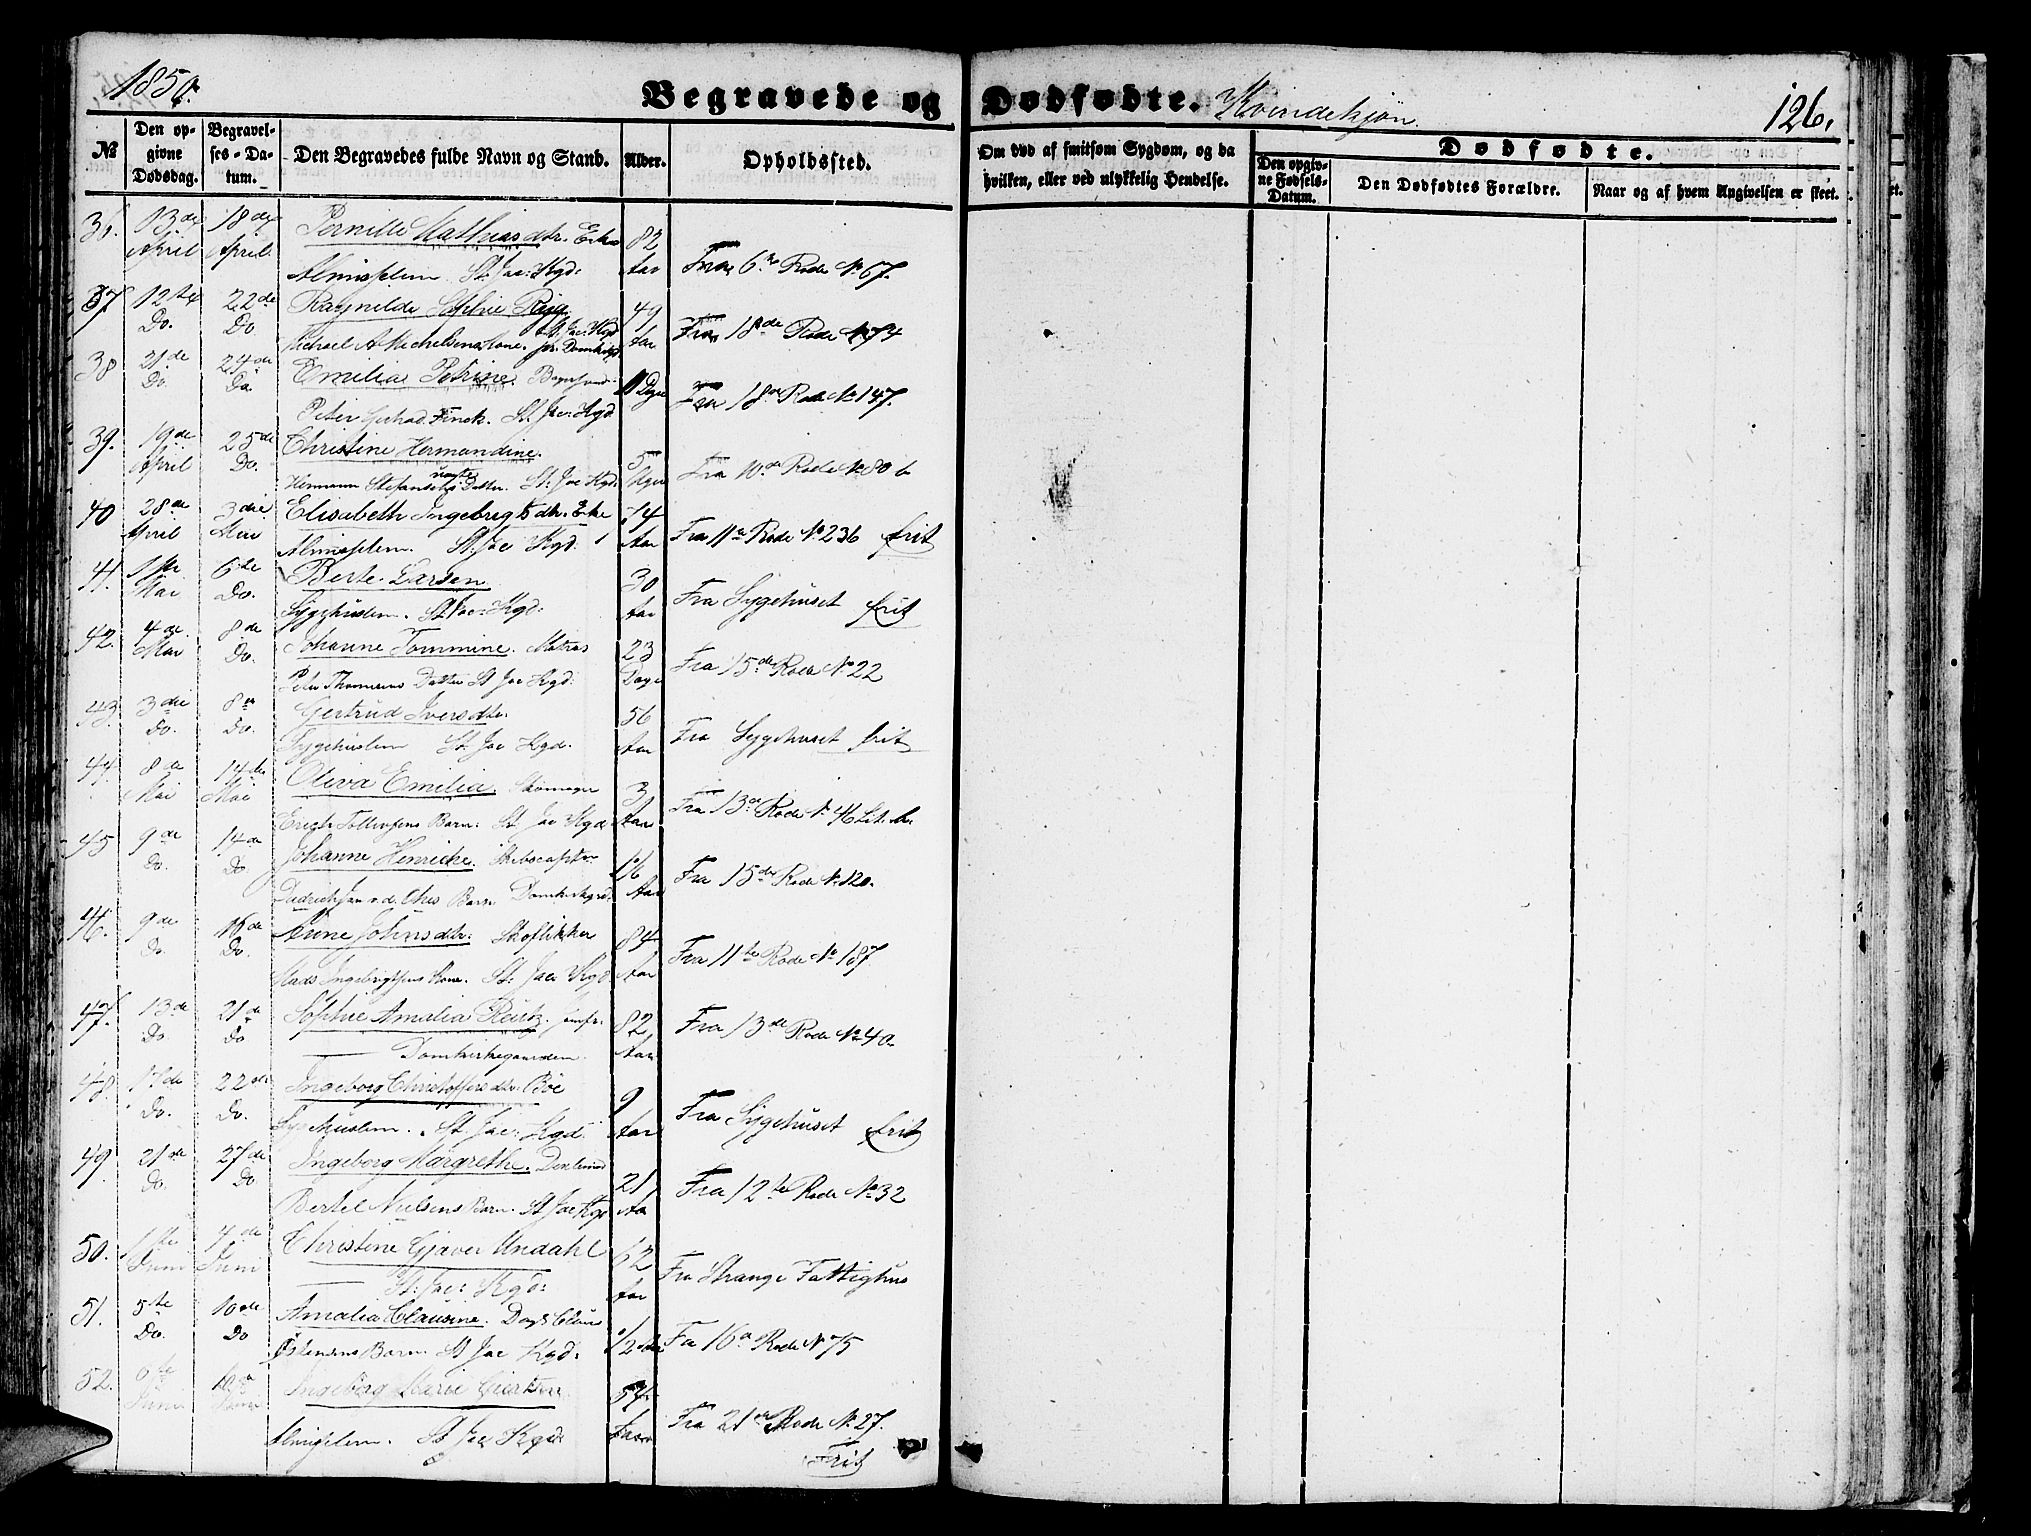 1850.
Begravede og Dødfødte. Kvindekjøn 126.
№ Den opgivne Dødsdag. Begravelses-Datum. Den Begravedes fulde Navn og Stand. Alder. Opholdssted. Om død af smitsom Sygdom, og da hvilken, eller ved ulykkelig Hendelse. Dødfødte.
Den opgivne Fødsels-Datum. Den Dødfødtes Forældre. Naar og af hvem Angivelsen er skeet.
36. 13de April 18de April Pernille Mathiasdtr. Enke 82 Aar Fra 6te Rode No 67.
Almisslem St. Jac: Kgd:
37 12te Do. 22de Do Ragnilde Sophie 49 Aar Fra 18de Rode No 74
Michael A Michelsens Kone. St. Jac: Kgd
38 21de Do. 24de Do. Emilia Petrine. Dage Fra 18de Rode No 147.
Peter Gerhad Finck. St. Jac: Kgd
39. 19de April 25de Do. Christine Hermandine. 5 Uger Fra 10de Rode No 80 b
Hermann Stefansens uægte Datter. St. Jac Kgd:
40 28de April 3die Mai Elisabeth Ingebrigtsdtr. Enke 74 Aar Fra 11te Rode No. 236 frit
Almisslem. St. Jac Kgd:
41. 1ste Mai 6te Do. Berte Larsen 30 Aar Fra Sygehuset frit
Sygehuslem. St Jac: Kgd:
42. 4de Mai 8de Do. Johanne Tommine. Matros 23 Dage Fra 15de Rode No. 22
Peter Thomsens Datter St Jac Kgd:
43. 3die Do. 8de Do. Gertrud Iversdtr: 56 Aar Fra Sygehuset frit
Sygehuslem St. Jac Kgd.
44. 8de Mai 14de Mai Oliva Emilia. Skomager 3 Aar Fra 13de Rode No. 46 Lit. b.
Erich Tollevsens Barn: St. Jac Kgd
45 9de Do. 14de Do Johanne Henricke. Skibscaptein 16 Aar Fra 15de Rode No. 120.
Barn Domkirkegrd
46. 9de Do. 16de Do. Anne Johnsdtr: Skoflikker 84 Aar Fra 11te Rode No 187
Mads Ingebrigtsens Kone. St: Jac: Kgd
47. 13de Do. 21de Do Sophie Amalia Jomfr. 82 Aar Fra 13de Rode No 40
— Domkirkegaarden
48. 17de Do. 22de Do. Ingeborg Christoffersdtr: Böe 9 Aar Fra Sygehuset frit
Sygehuslem. St. Jac: Kgd.
49. 21de Do. 27de Do Ingeborg Margrethe. 21 Aar Fra 12te Rode No 32
Bertel Nielsens Barn. St Jac Kgd
50. 1ste Juni 4de Juni Christine Gjæver Undahl 62 Aar Fra Strange Fattighus
— St: Jac: Kgd:
51. 5te Do. 10de Do Amalia Clausine. Dags Claus 1/2 Fra 16de Rode No 75
Östensens Barn. St Jac Kgd:
52. 6te Juni 10de Ingeborg Marie 54 Aar Fra 21de Rode No. 27.
Almisslem. St Jac Kgd: Frit